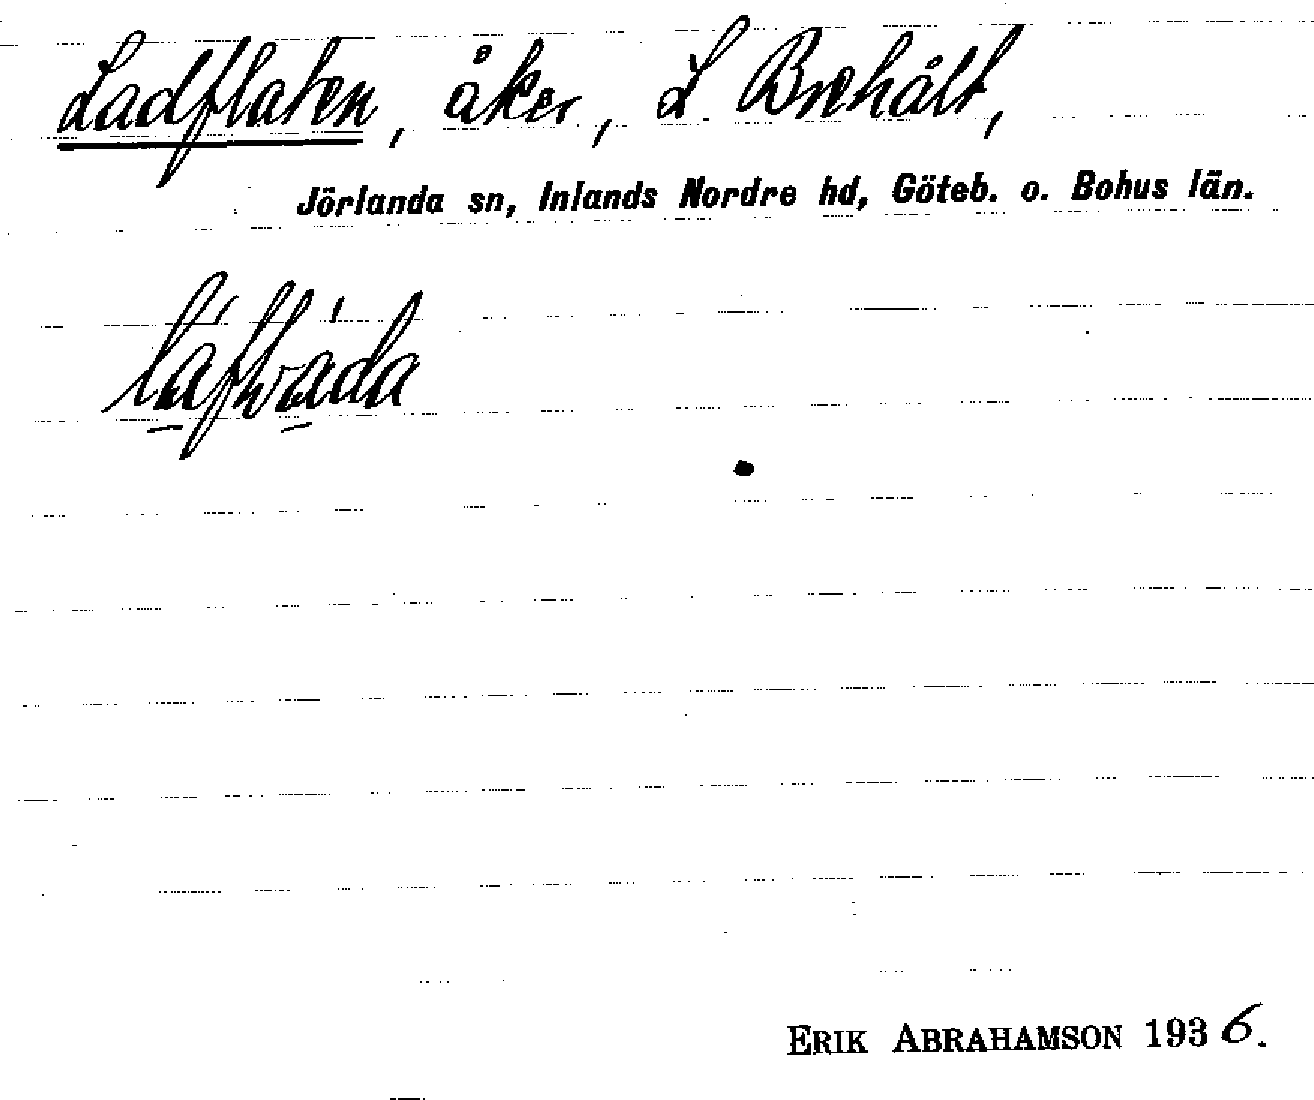 Ladflaten, åker, L. Brehålt,
Jörlanda sn, Inlands Nordre hd, Göteb. o. Bohus län.
ERIK ABRAHAMSON 1936.